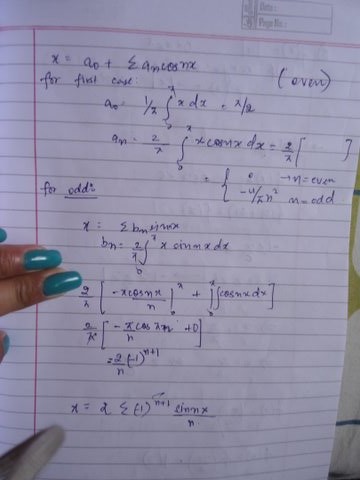 Date:
Page No.:
x = a₀ + Σ aₙ cosnx
for first case: (even)
a₀ = 1/π ∫₀^π x dx = π/2
aₙ = 2/π ∫₀^π x cosnx dx = 2/π [ ]
= { 0 → n = even
-4/πn² n = odd
for odd:
x = Σ bₙ sinnx
bₙ = 2/π ∫₀^π x sinnx dx
2/π [ -x cosnx/n |₀^π + ∫₀^π cosnx dx ]
2/π [ -π cos πn/n + 0 ]
= 2/n (-1)ⁿ⁺¹
x = 2 Σ (-1)ⁿ⁺¹ sinnx/n